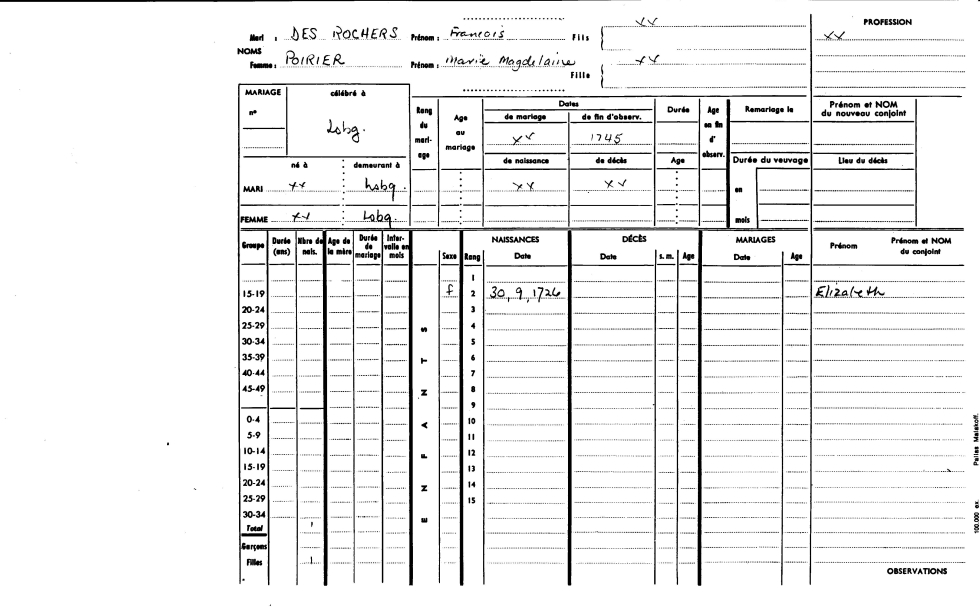 PROFESSION
Mari : DES ROCHERS Prénom : Francois Fils { xx
xx
NOMS
Femme : POIRIER Prénom : Marie Magdelaine Fille { xx
MARIAGE célébré à
n°
Lobg.
né à : demeurant à
MARI xx : Lobg.
FEMME xx : Lobg.
Rang du mari-age
Age au mariage
Dates
de mariage de fin d'observ.
xx 1745
de naissance de décès
xx xx
Durée
Age
Age en fin d' observ.
Remariage le
Durée du veuvage
en
mois
Prénom et NOM du nouveau conjoint
Lieu du décès
Groupe Durée (ans) Nbre de nais. Age de la mère Durée de mariage Inter-valle en mois Sexe Rang NAISSANCES Date DÉCÈS Date s. m. Age MARIAGES Date Age Prénom Prénom et NOM du conjoint
1
15-19 f 2 30, 9, 1726 Elizabeth
20-24 3
25-29 S 4
30-34 5
35-39 T 6
40-44 7
45-49 N 8
9
0-4 A 10
5-9 11
10-14 F 12
15-19 13
20-24 N 14
25-29 15
30-34 E
Total 1
Garçons
Filles 1
OBSERVATIONS
100.000 ex. Pelles Malakoff.